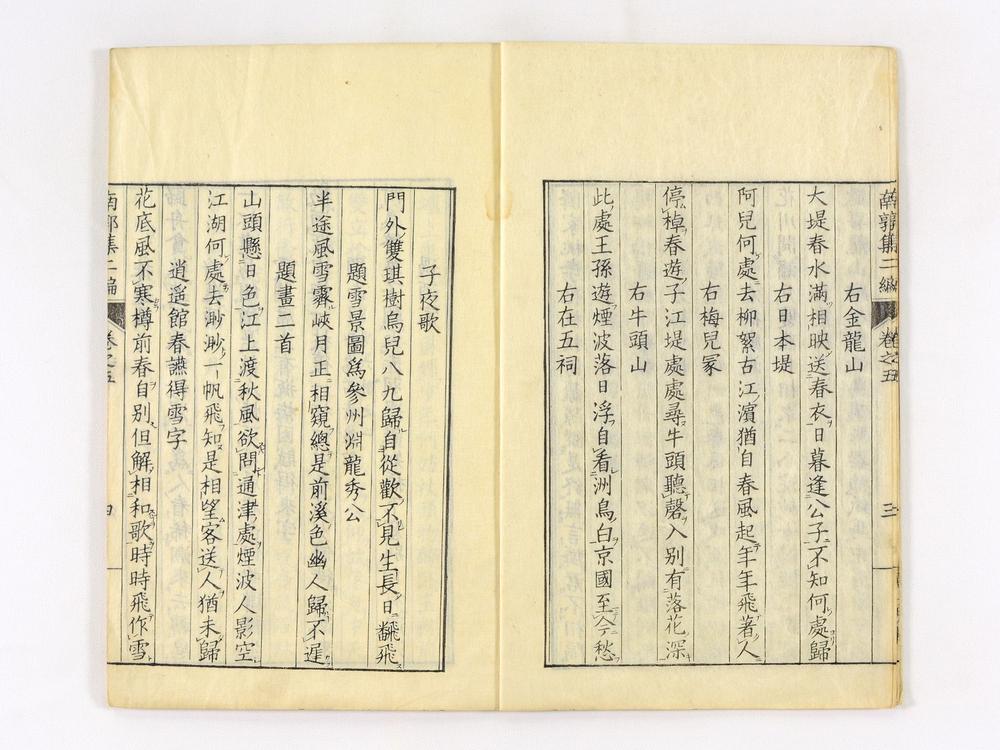 南郭集二編 卷之五 三
右金龍山
大堤春水滿相映送春衣日暮逢公子不知何處歸
右日本堤
阿兒何處去柳絮古江濱猶自春風起年年飛著人
右梅兒冢
停棹春遊子江堤處處尋牛頭聽磬入別有落花深
右牛頭山
此處王孫遊煙波落日浮自看洲鳥白京國至今愁
右在五祠
子夜歌
門外雙琪樹烏兒八九歸自從歡不見生長日飜飛
題雪景圖爲參州淵龍秀公
半途風雪霽峽月正相窺總是前溪色幽人歸不遲
題畫二首
山頭懸日色江上渡秋風欲問通津處煙波人影空
江湖何處去渺渺一帆飛知是相望客送人猶未歸
逍遥館春讌得雪字
花底風不寒樽前春自別但解相和歌時時飛作雪
南郭集二編 卷之五 四